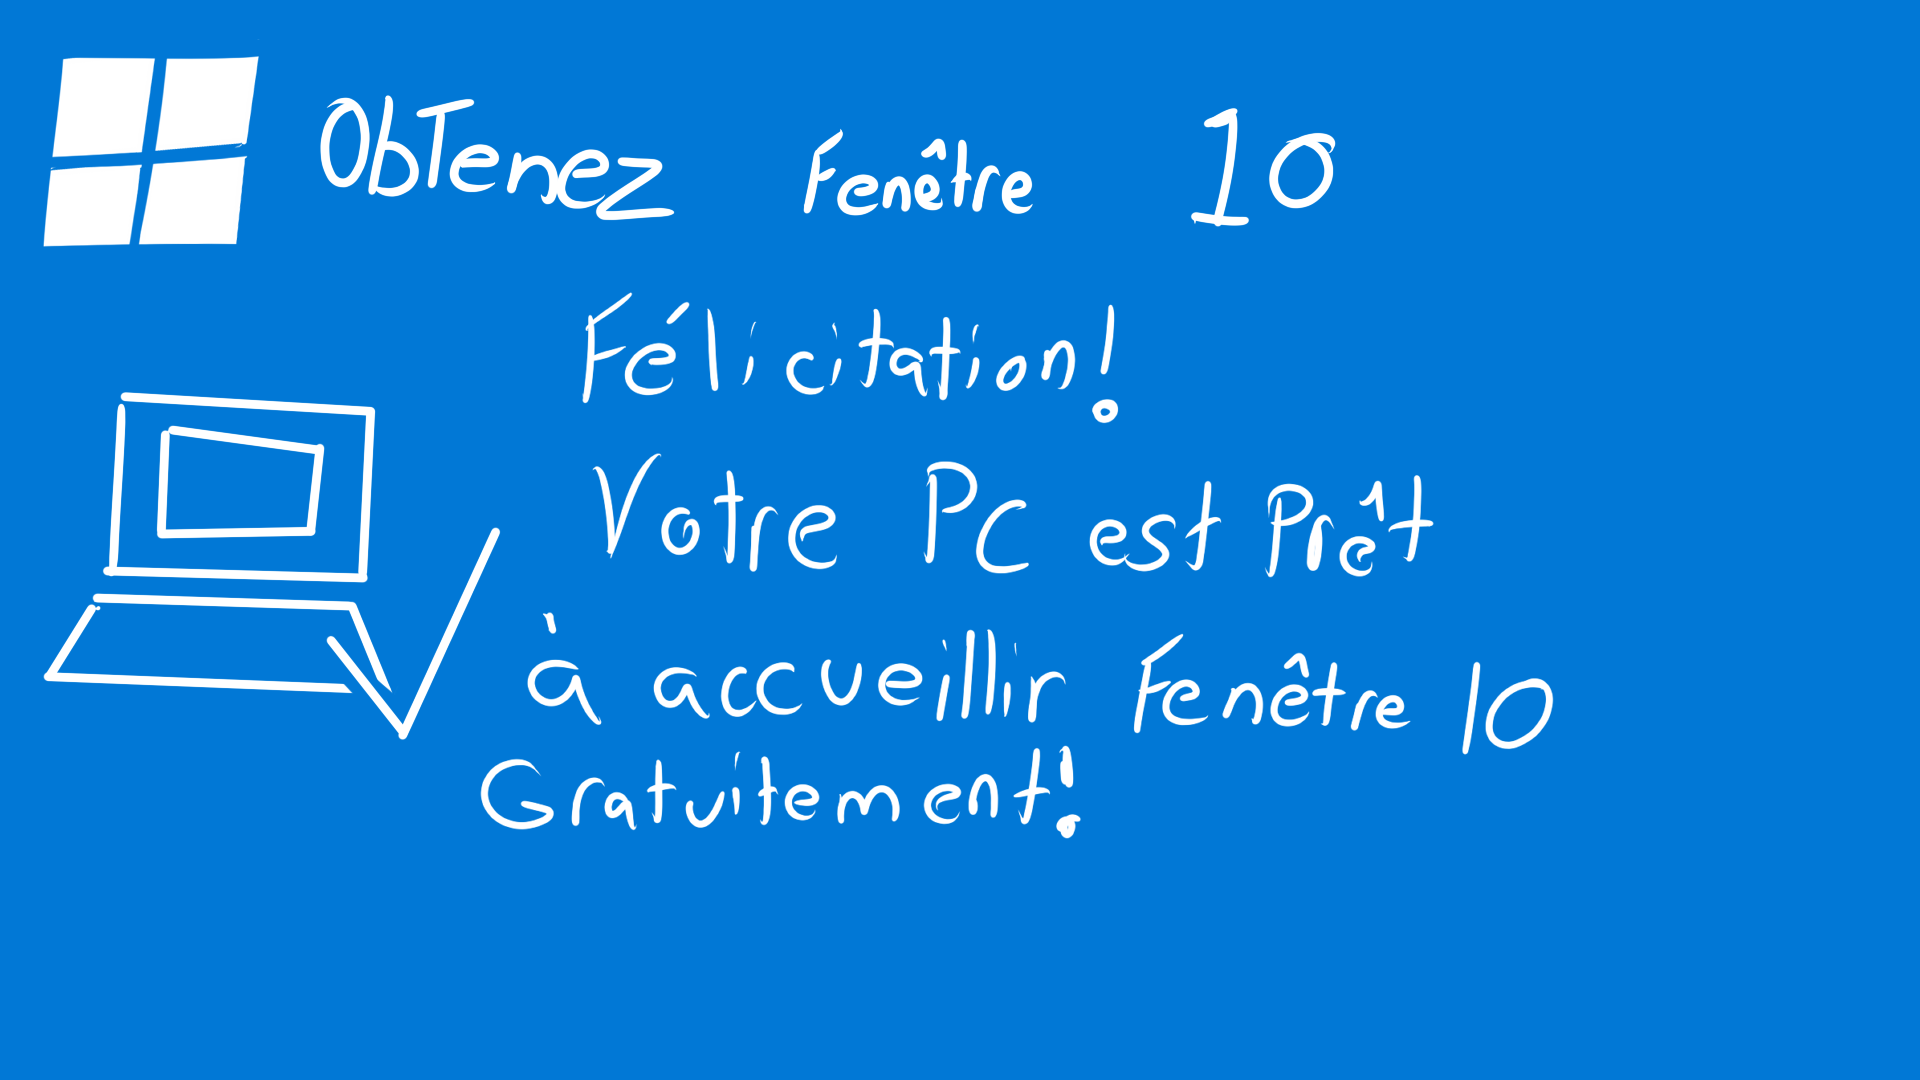 Obtenez Fenêtre 10
Félicitation!
Votre PC est Prêt
à accueillir Fenêtre 10
Gratuitement!